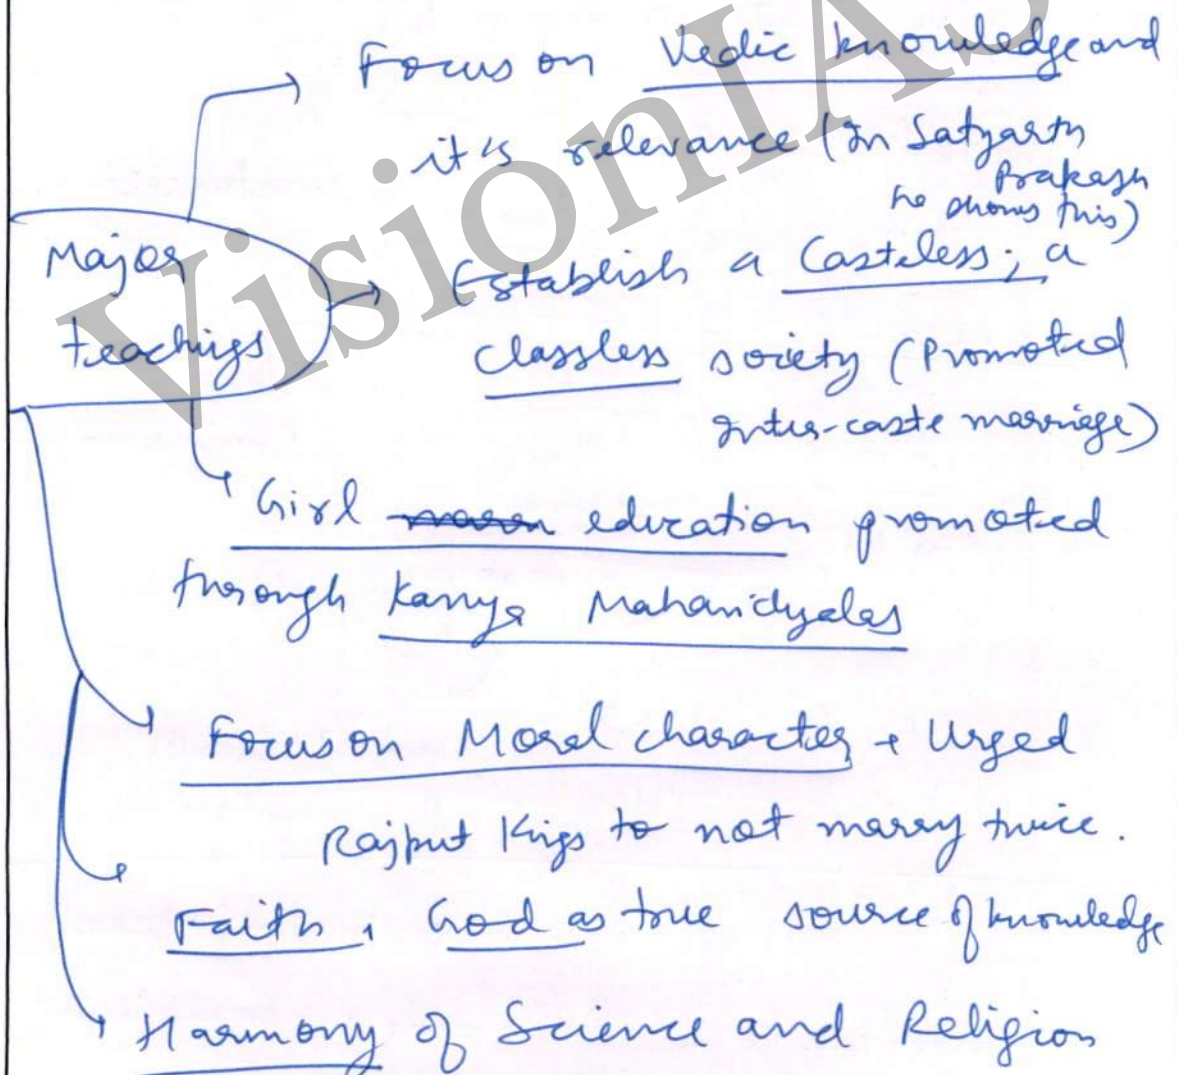 VisionIAS
Focus on Vedic knowledge and
it's relevance (In Satyarth
Prakash
he shows this)
Major
teachings
Establish a Casteless; a
classless society (Promoted
Inter-caste marriage)
Girl education promoted
through Kanya Mahavidyalas
Focus on Moral character + Urged
Rajput Kigs to not marry twice.
Faith, God as true source of knowledge
Harmony of Science and Religion